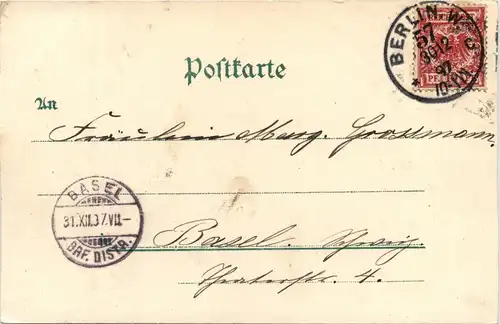 BERLIN W.
57
30 12
97
10-11
Postkarte
An
Fräulein Marg. Grossmann.
BASEL
31.XII.97.VII-
BRF. DISTR.
Basel. Schweiz.
Theaterstr. 4.